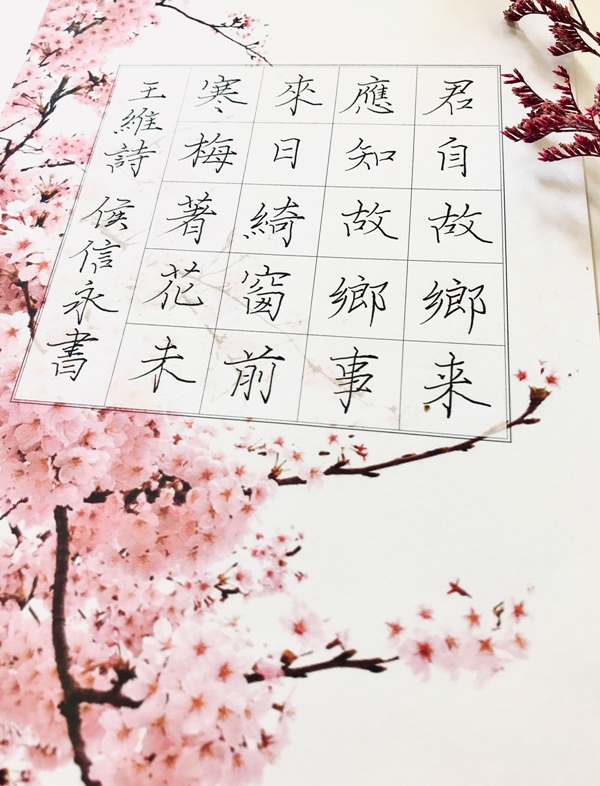 君自故鄉来
應知故鄉事
來日綺窗前
寒梅著花未
王維詩 侯信永書